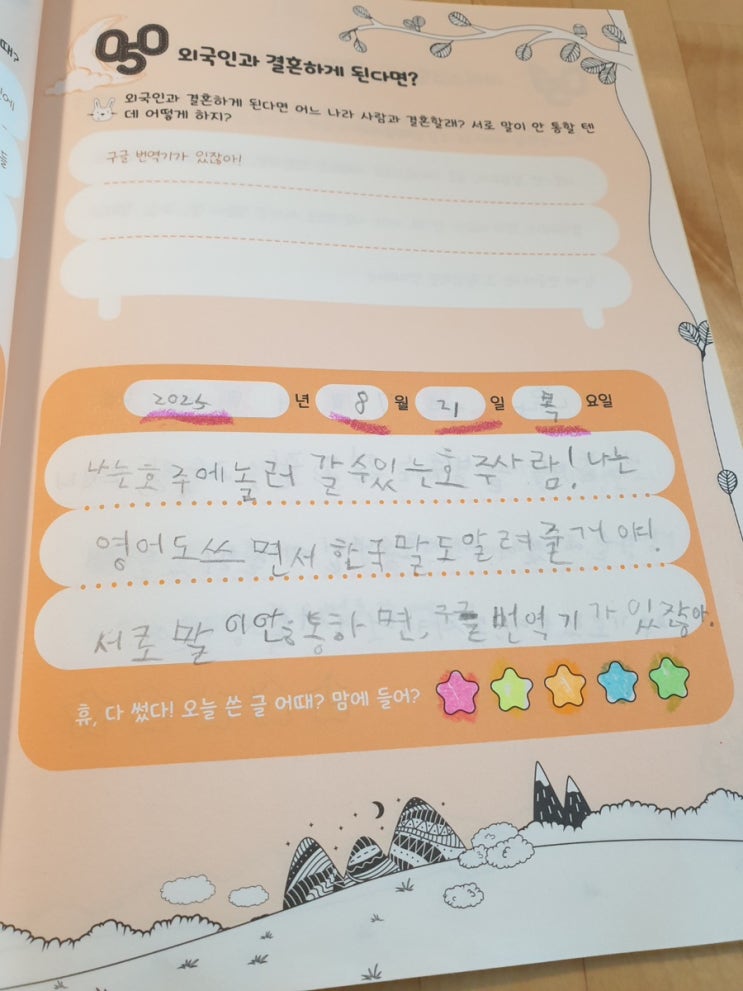 050 외국인과 결혼하게 된다면?
외국인과 결혼하게 된다면 어느 나라 사람과 결혼할래? 서로 말이 안 통할 텐
데 어떻게 하지?
구글 번역기가 있잖아!
2025 년 8 월 21 일 목 요일
나는 호주에 놀러 갈 수 있는 호주 사람! 나는
영어도 쓰면서 한국말도 알려줄 거야!
서로 말이 안 통하면, 구글 번역기가 있잖아.
휴, 다 썼다! 오늘 쓴 글 어때? 맘에 들어?